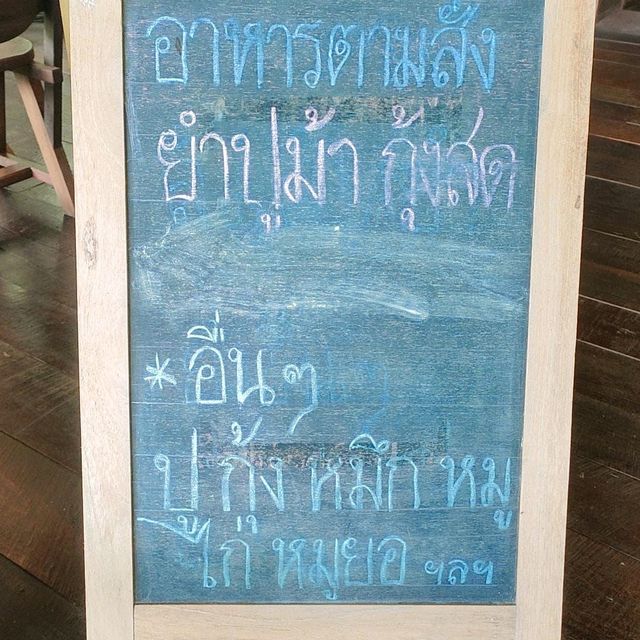 อาหารตามสั่ง
ยำปูม้า กุ้งสด
*อื่นๆ
ปู กุ้ง หมึก หมู
ไก่ หมูยอ ฯลฯ